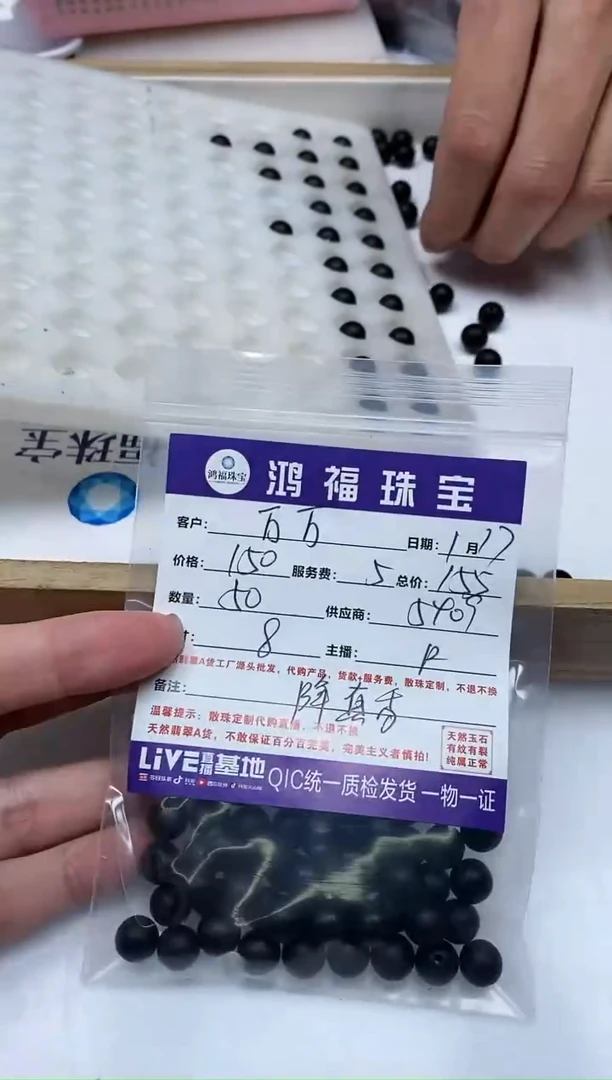 鸿福珠宝
鸿福珠宝
客户: 百百 日期: 1月17
价格: 150 服务费: 5 总价: 155
数量: 50 供应商: 5409
寸: 8 主播: P
翡翠A货工厂源头批发，代购产品，货款+服务费，散珠定制，不退不换
备注: 降真香
温馨提示：散珠定制代购直播，不退不换
天然翡翠A货，不敢保证百分百完美，完美主义者慎拍！
天然玉石
有纹有裂
纯属正常
LiVE直播基地 QIC统一质检发货 一物一证
福珠宝